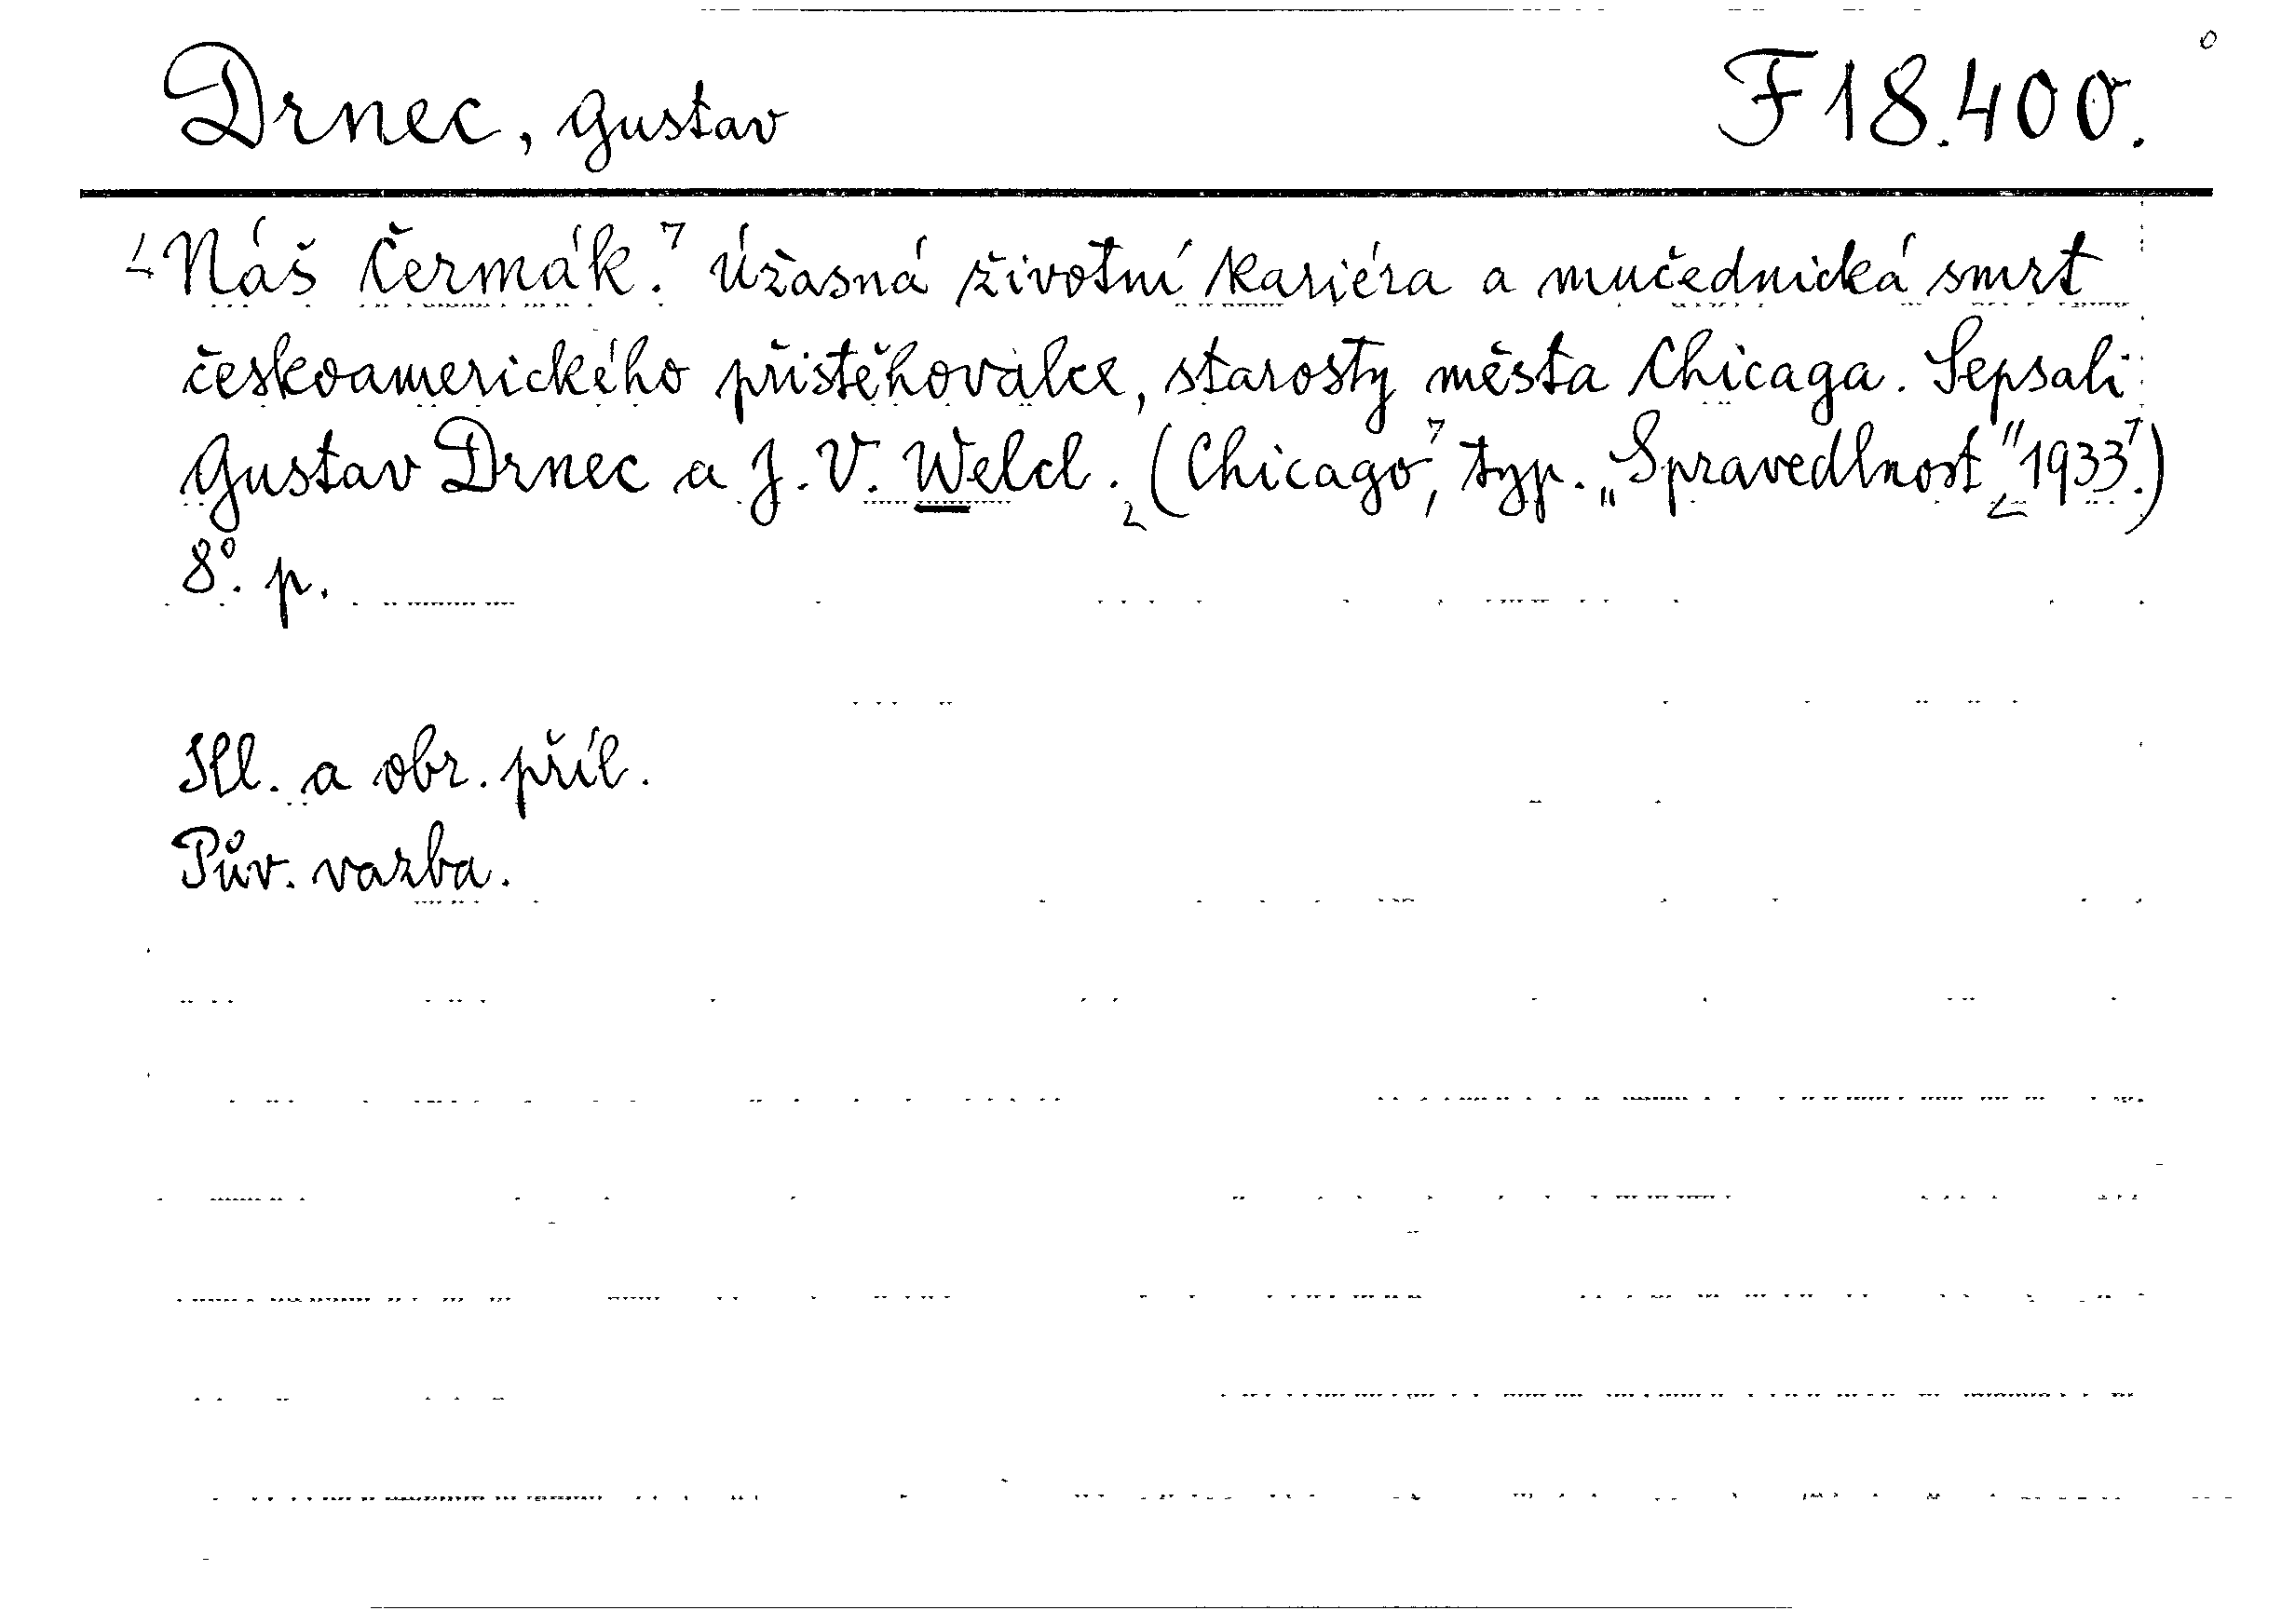 Drnec, Gustav F 18.400.
Náš Čermák. Úžasná životní kariéra a mučednická smrt
českoamerického přistěhovalce, starosty města Chicaga. Sepsali
Gustav Drnec a J. V. Welcl. (Chicago, typ. „Spravedlnost“ 1933.)
8°. p.
Ill. a obr. příl.
Pův. vazba.